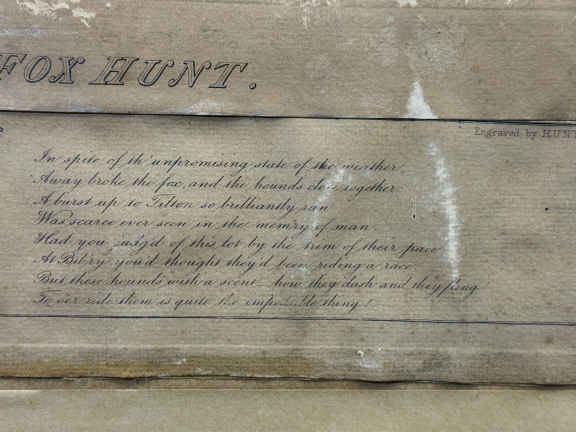 FOX HUNT.
Engraved by HUNT
In spite of th' unpromising state of the weather
Away broke the fox, and the hounds close together
A burst up to Tilton so brilliantly ran
Was scarce ever seen in the mem'ry of man
Had you judg'd of this lot by the trim of their pace
At Bib'ry you'd thought they'd been riding a race
But these hounds with a scent, how they dash and they fling
To o'er ride them is quite the impossible thing!